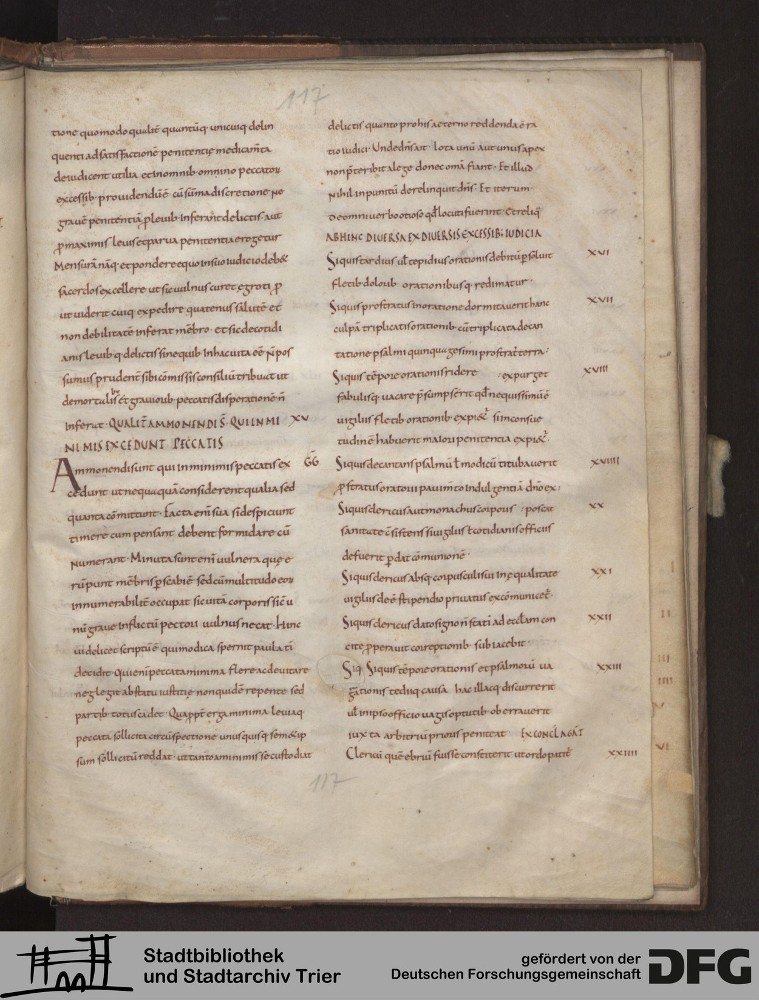 117
tione quomodo qualit̄ quantūq· unicuiq· delin
quenti ad satisfactionē penitentię medicam̄ta
deiudicent utilia et inomnib· omnino peccatorū
excessib· prouidendū ē· cū sūma discretione ne
grauē penitentiā p leuib· inferant delictis aut
p maximis leuis et parua penitentia erogetur
Mensurā nāq· et pondere equo in suo iudicio deb&
sacerdos excellere ut sic uulnus curet egroti p
ut uiderit cuiq· expedire quatenus salutē et
non debilitatē inferat mēbro· et sic de cotidi
anis leuib· q· delictis sine quib· in hac uita eē n̄ pos
sumus prudent̄ sibi cōmissis consiliū tribuat ut
de mortalib· et grauiorib· peccatis disperationē n̄
inferat· QUALIT̄ AMMONENDI S̄· QUI IN MI XV
NIMIS EXCEDUNT PECCATIS
Ammonendi sunt qui in minimis peccatis ex GG̅
cedunt ut nequaquā considerent qualia sed
quanta cōmittunt· Facta enī sua si despiciunt
timere cum pensant debent formidare cū
numerant· Minuta sunt enī uulnera quę e
rūpunt mēbris p scabiē sed cū multitudo eorū
innumerabilit̄ occupat sic uitā corporis sic ū
nū graue inflictū pectori uulnus necat· Hinc
uidelicet scriptū ē qui modica spernit paulati
decidit· Qui enī peccata minima flere ac deuitare
neglegit ab statu iustitię non quidē repente sed
partib· totus cadet· Quappt̄ erga minima leuiaq·
peccata sollicita circūspectione unusquisq· semetip
sum sollicitū reddat· ut tanto a minimis se custodiat
delictis quanto pro his aeterno reddenda ē ra
tio iudici· Unde dn̄s ait· Iota unū aut unus apex
non p̄teribit a lege donec omā fiant· Et illud
Nihil inpunitū derelinquit dn̄s· Et iterum·
De omni uerbo otioso qd̄ locuti fuerint· Et reliq̄
AB HINC DIUERSA EX DIUERSIS EXCESSIB· IUDICIA
Siquis tardius ul̄ tepidius orationis debitū psoluit XVI
fletib· dolorib· orationibusq· redimatur·
Siquis prostratus in oratione dormitauerit hanc XVII
culpā triplicatis orationib· cū triplicata decan
tatione psalmi quinquagesimi prostrat̄ terra·
Siquis tēpore orationis ridere expurget XVIII
fabulisq· uacare p̄sumpserit qd̄ nequissimū ē
uigiliis fletib· orationib· expiet̄ si in consue
tudinē habuerit maiori penitentia expiet̄·
Siquis decantans psalmū t̄ modicū titubauerit XVIIII
p̄stratus oratorii pauimto indulgentiā dn̄o ex·
Siquis clericus aut monachus corporis poscat XX
sanitate c̄sistens si uigiliis t̄ cotidianis officiis
defuerit pdat cōmunionē·
Siquis clericus absq· corpusculi sui inęqualitate XXI
uigiliis deē stipendio priuatus excōmunicet̄·
Siquis clericus dato signo n̄ statī ad eccl̄am con XXII
cite pperauit correptionib· subiacebit·
Siq· Siquis tēpore orationis et psalmorū ua XXIII
gationis tediiq· causa hac illacq· discurrerit
ul̄ in ipso officio uagis optutib· oberrauerit
iuxta arbitriū prioris peniteat EX CONCL AGAT
Clericū quē ebriū fuisse constiterit ut ordo patit̄ XXIIII
117
Stadtbibliothek
und Stadtarchiv Trier
gefördert von der
Deutschen Forschungsgemeinschaft
DFG